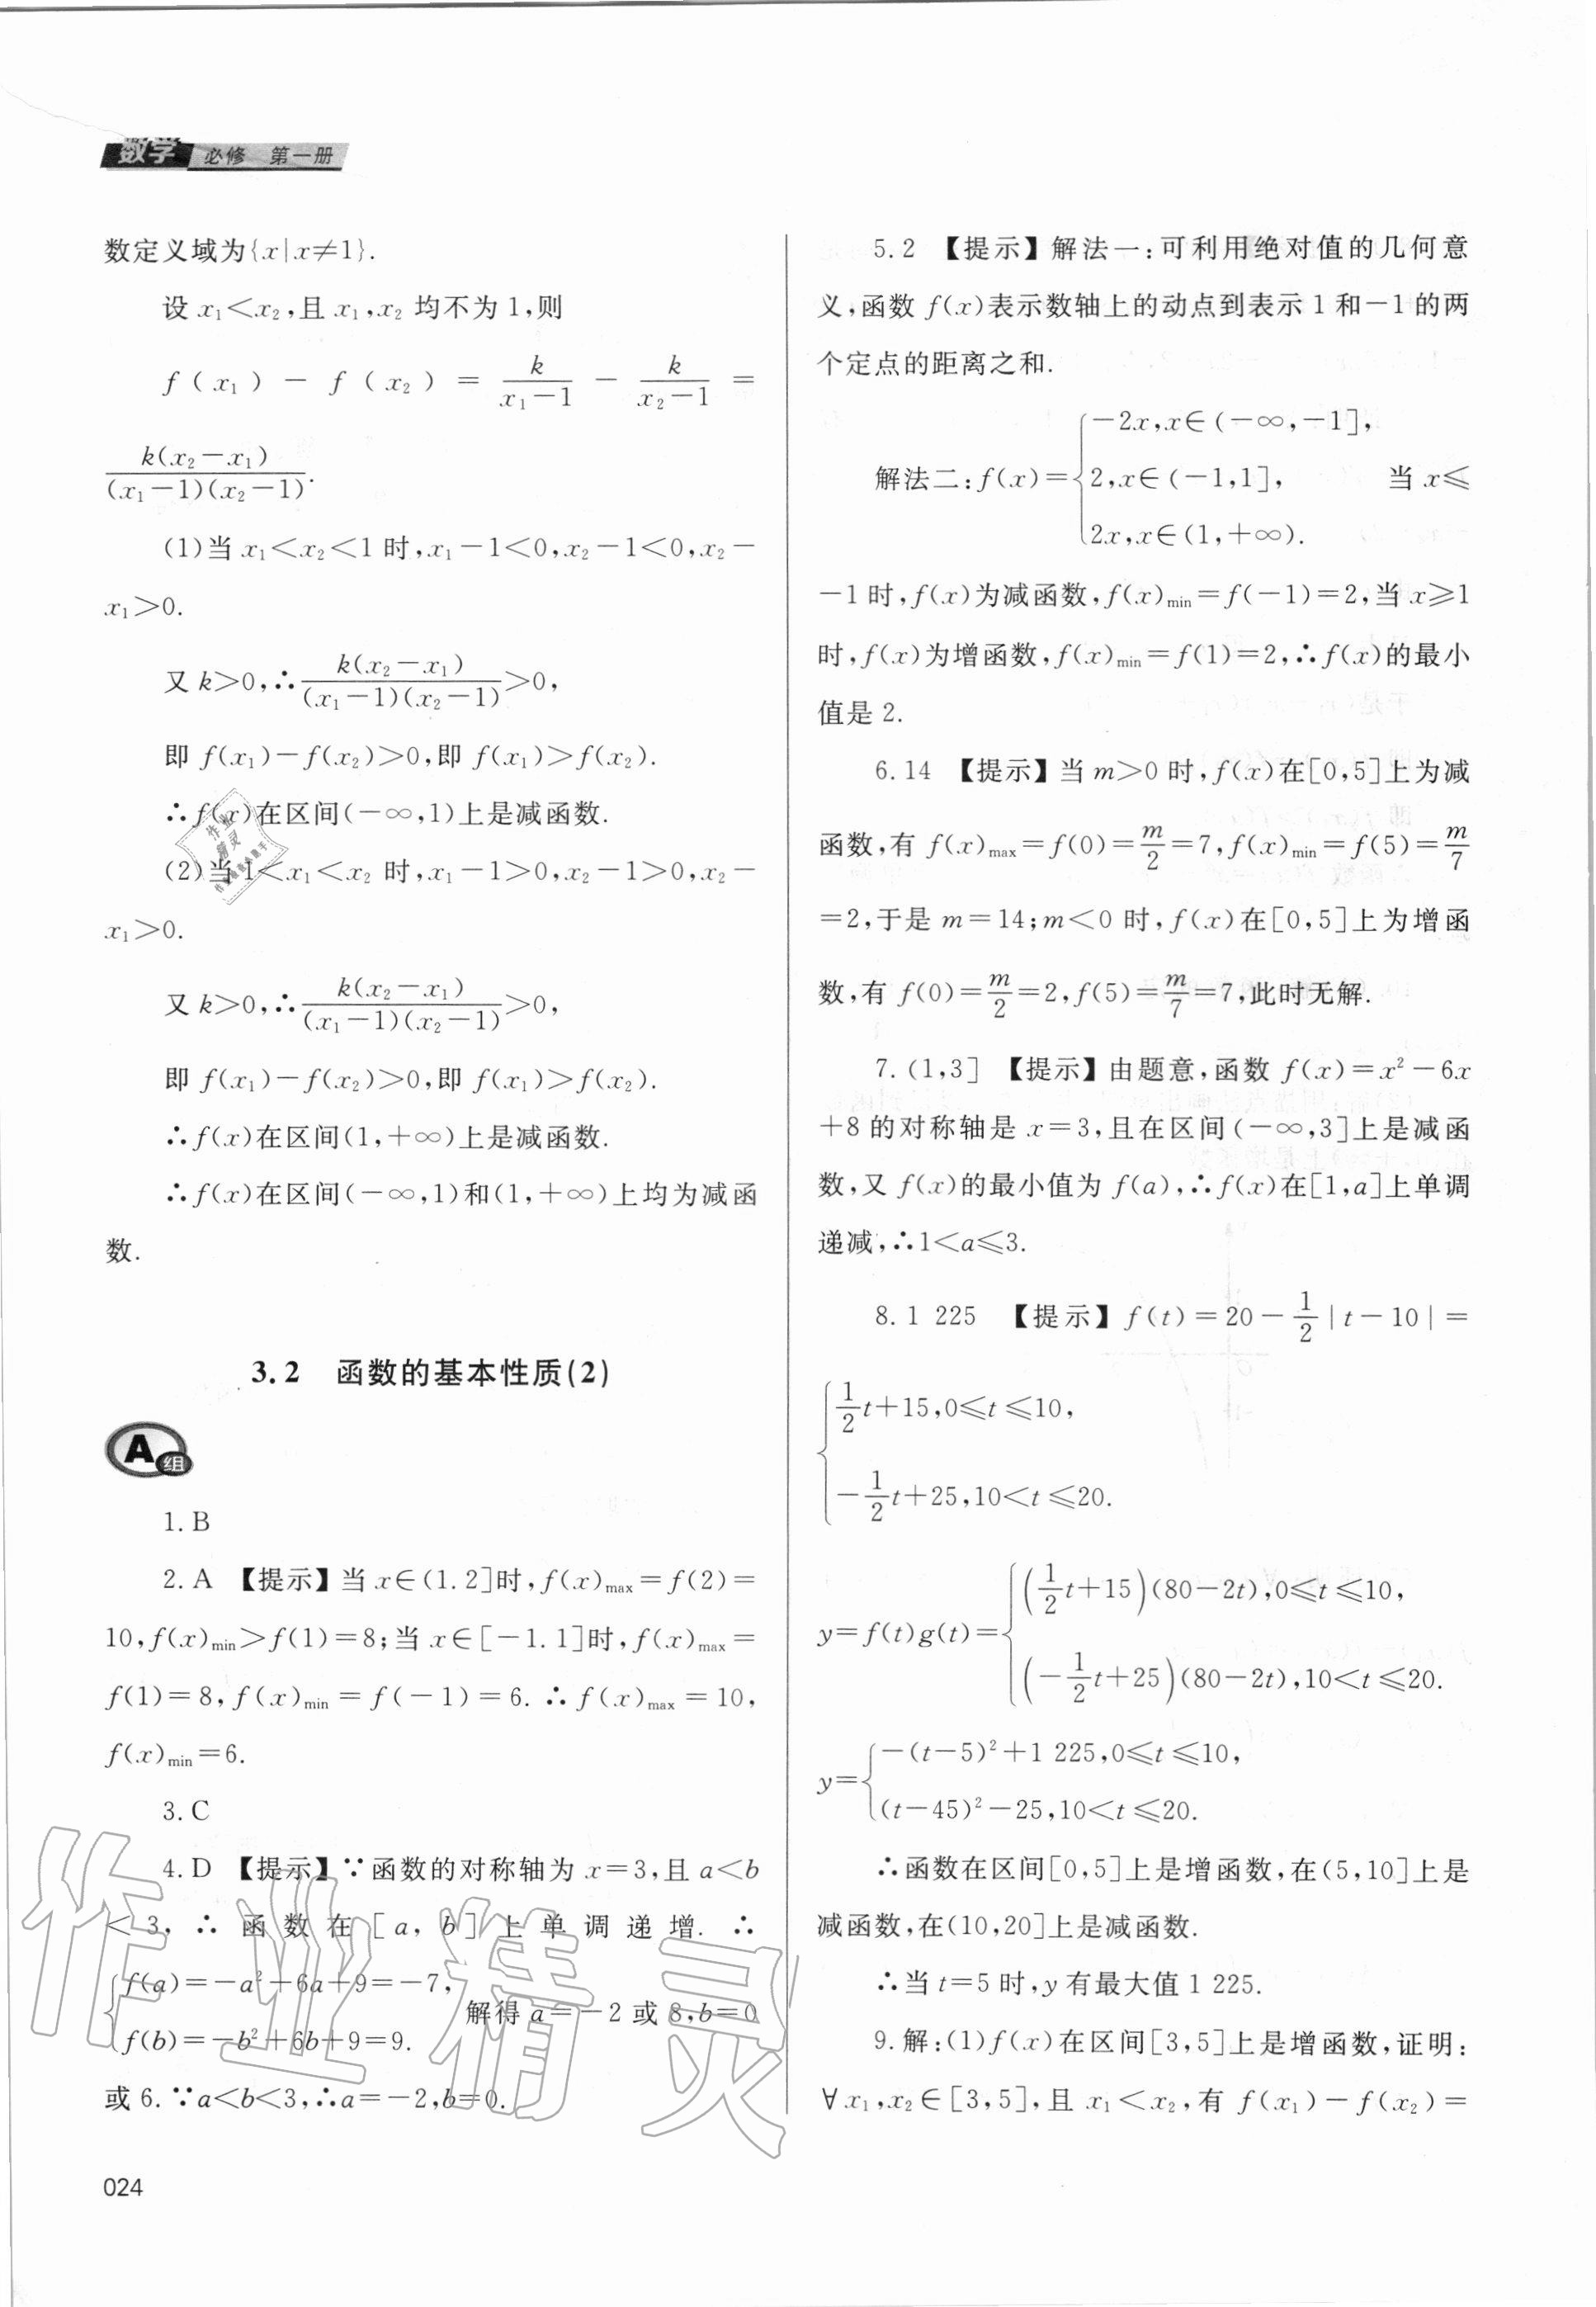 数学 必修 第一册
数定义域为{x|x≠1}.
设 x₁<x₂,且 x₁,x₂ 均不为 1,则
f(x₁)-f(x₂)=k/(x₁-1)-k/(x₂-1)=
k(x₂-x₁)/(x₁-1)(x₂-1).
(1)当 x₁<x₂<1 时,x₁-1<0,x₂-1<0,x₂-
x₁>0.
又 k>0,∴k(x₂-x₁)/(x₁-1)(x₂-1)>0,
即 f(x₁)-f(x₂)>0,即 f(x₁)>f(x₂).
∴f(x)在区间(-∞,1)上是减函数.
(2)当 1<x₁<x₂ 时,x₁-1>0,x₂-1>0,x₂-
x₁>0.
又 k>0,∴k(x₂-x₁)/(x₁-1)(x₂-1)>0,
即 f(x₁)-f(x₂)>0,即 f(x₁)>f(x₂).
∴f(x)在区间(1,+∞)上是减函数.
∴f(x)在区间(-∞,1)和(1,+∞)上均为减函
数.
3.2 函数的基本性质(2)
A组
1.B
2.A 【提示】当 x∈(1.2]时,f(x)max=f(2)=
10,f(x)min>f(1)=8;当 x∈[-1.1]时,f(x)max=
f(1)=8,f(x)min=f(-1)=6.∴f(x)max=10,
f(x)min=6.
3.C
4.D 【提示】∵函数的对称轴为 x=3,且 a<b
<3,∴函数在[a,b]上单调递增.∴
{f(a)=-a²+6a+9=-7,
f(b)=-b²+6b+9=9. 解得 a=-2 或 8,b=0
或 6.∵a<b<3,∴a=-2,b=0.
024
5.2 【提示】解法一:可利用绝对值的几何意
义,函数 f(x)表示数轴上的动点到表示 1 和-1 的两
个定点的距离之和.
解法二:f(x)={-2x,x∈(-∞,-1],
2,x∈(-1,1], 当 x≤
2x,x∈(1,+∞).
-1 时,f(x)为减函数,f(x)min=f(-1)=2,当 x≥1
时,f(x)为增函数,f(x)min=f(1)=2,∴f(x)的最小
值是 2.
6.14 【提示】当 m>0 时,f(x)在[0,5]上为减
函数,有 f(x)max=f(0)=m/2=7,f(x)min=f(5)=m/7
=2,于是 m=14;m<0 时,f(x)在[0,5]上为增函
数,有 f(0)=m/2=2,f(5)=m/7=7,此时无解.
7.(1,3] 【提示】由题意,函数 f(x)=x²-6x
+8 的对称轴是 x=3,且在区间(-∞,3]上是减函
数,又 f(x)的最小值为 f(a),∴f(x)在[1,a]上单调
递减,∴1<a≤3.
8.1 225 【提示】f(t)=20-1/2|t-10|=
{1/2t+15,0≤t≤10,
-1/2t+25,10<t≤20.
y=f(t)g(t)={(1/2t+15)(80-2t),0≤t≤10,
(-1/2t+25)(80-2t),10<t≤20.
y={-(t-5)²+1 225,0≤t≤10,
(t-45)²-25,10<t≤20.
∴函数在区间[0,5]上是增函数,在(5,10]上是
减函数,在(10,20]上是减函数.
∴当 t=5 时,y 有最大值 1 225.
9.解:(1)f(x)在区间[3,5]上是增函数,证明:
∀x₁,x₂∈[3,5],且 x₁<x₂,有 f(x₁)-f(x₂)=
作业精灵